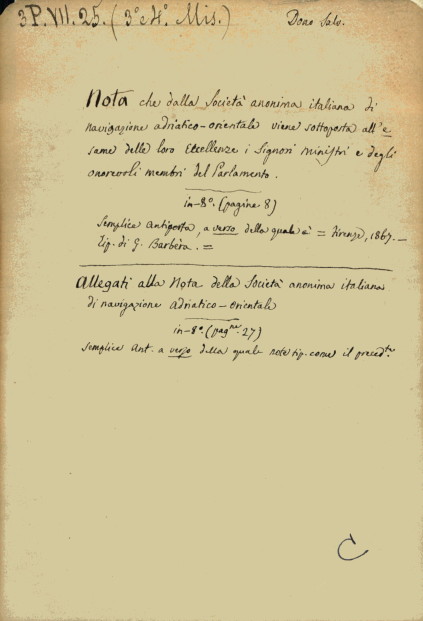 3P.VII.25. (3° e 4° Mis.) Dono Salv.
Nota che dalla Società anonima italiana di
navigazione adriatico-orientale viene sottoposta all'e
same delle loro Eccellenze i Signori ministri e degli
onorevoli membri del Parlamento.
in-8°. (pagine 8)
Semplice Antiporta, a verso della quale è = Firenze, 1867.—
Tip. di G. Barbèra. =
Allegati alla Nota della Società anonima italiana
di navigazione Adriatico-orientale
in-8°. (pagne. 27)
Semplice Ant. a verso della quale note tip. come il precedte.
C